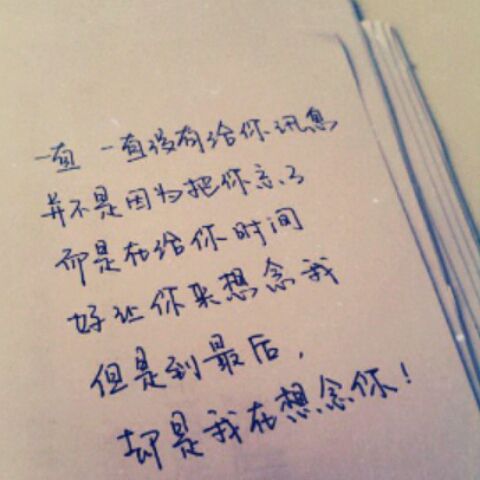 一直 一直没有给你讯息
并不是因为把你忘了
而是在给你时间
好让你来想念我
但是到最后，
却是我在想念你！